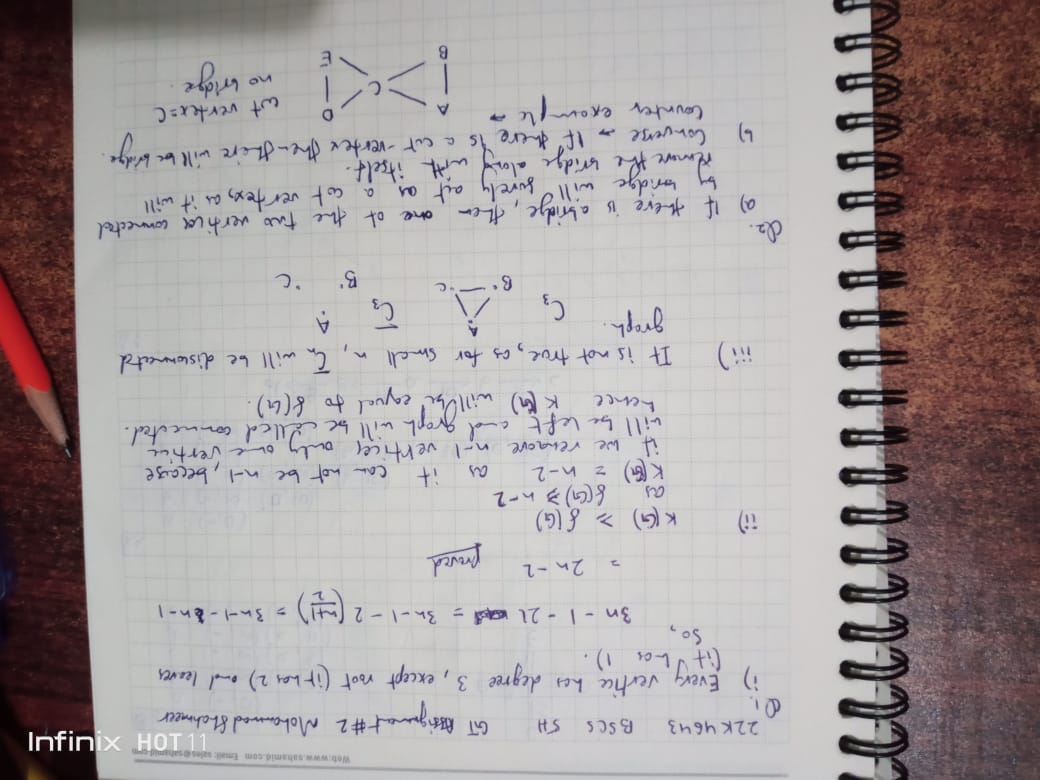 Web:www.sahamid.com Email: sales@sahamid.com
Infinix HOT 11
22K4643 BSCS 5H GT Assignment #2 Mohammad Shahmeer
Q1.
i) Every vertice has degree 3, except root (it has 2) and leaves
(it has 1).
So,
3n - 1 - 2l = 3n-1 - 2 (n+1/2) = 3n-1-n-1
= 2n-2 proved
ii) K(G) ≥ δ(G)
as δ(G) ≥ n-2
K(G) = n-2 as it can not be n-1, because
if we remove n-1 vertices only one vertice
will be left and graph will be called connected.
hence K(G) will be equal to δ(G).
iii) It is not true, as for small n, C̅n will be disconnected
graph.
C3 A B C C̅3 A B C
Q2.
a) If there is a bridge, then one of the two vertices connected
by bridge will surely act as a cut vertex, as it will
remove the bridge along with itself.
b) Converse → If there is a cut-vertex then there will be bridge.
counter example →
A D cut vertex=C
C no bridge.
B E